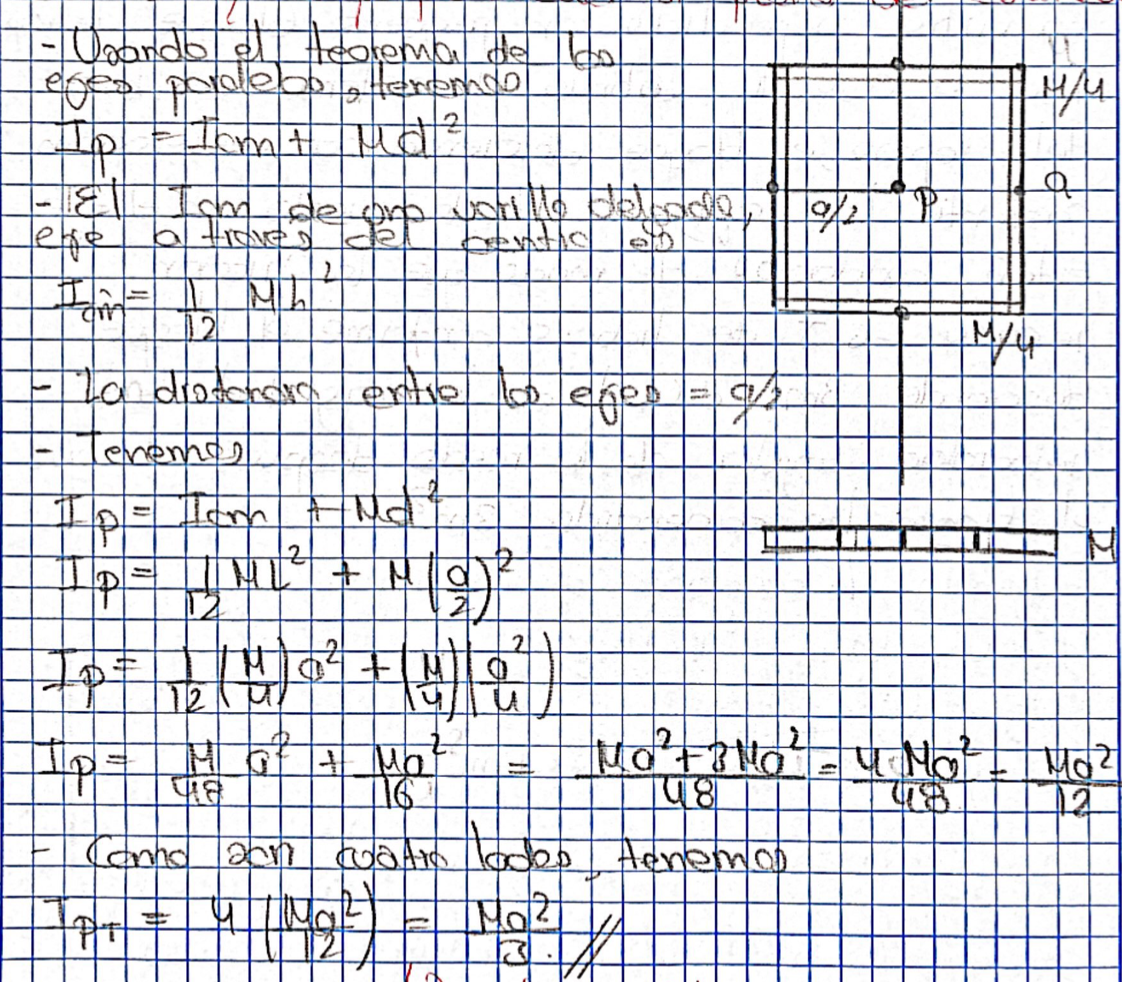 - Usando el teorema de los
ejes paralelos, tenemos
Ip = Icm + Md²
- El Icm de una varilla delgada,
eje a través del centro es
Icm = 1/12 ML²
- La distancia entre los ejes = a/2
- Tenemos
Ip = Icm + Md²
Ip = 1/12 ML² + M(a/2)²
Ip = 1/12 (M/4) a² + (M/4)(a²/4)
Ip = M/48 a² + Ma²/16 = Ma² + 3Ma²/48 = 4Ma²/48 = Ma²/12
- Como son cuatro lados, tenemos
IpT = 4 (Ma²/12) = Ma²/3 //
M/4
a
a/2 P
M/4
M